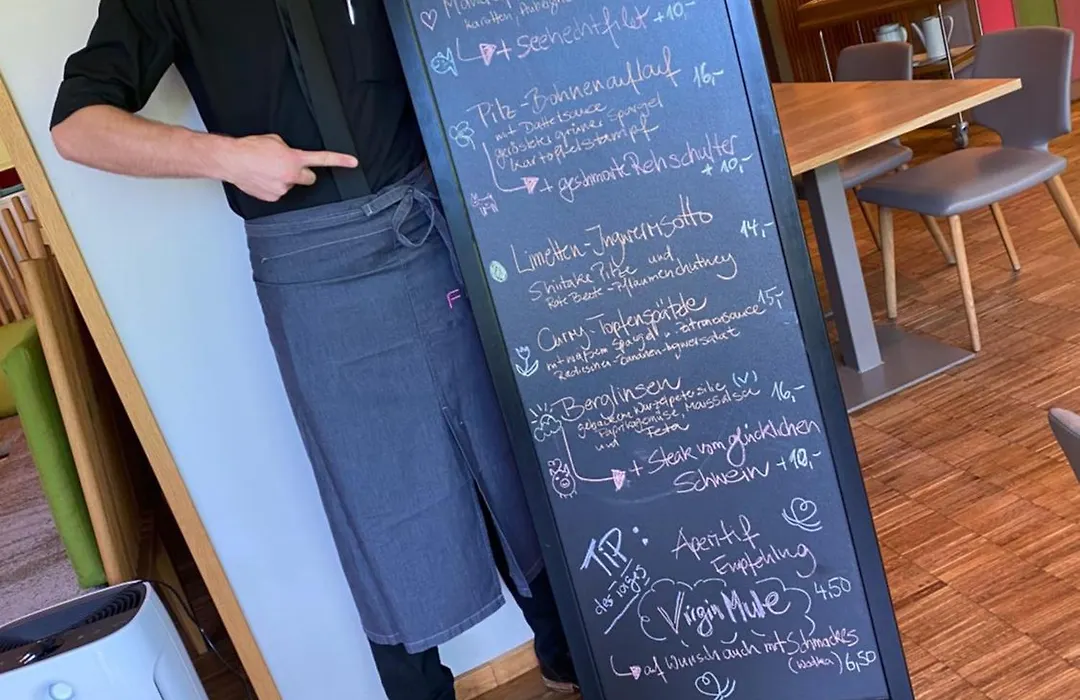 + Seehechtfilet +10,-
Pilz-Bohnenauflauf 16,-
mit Dattelsauce
gerösteter grüner Spargel
Kartoffelstampf
+ geschmorte Rehschulter
+10,-
Limetten-Ingwerrisotto 14,-
Shiitake Pilze und
Rote Beete-Pflaumenchutney
Curry-Topfenspätzle 15,-
mit weißem Spargel u. Zitronensauce
Radieschen-Bananen-Ingwersalat
Berglinsen (V) 16,-
gebackene Wurzelpetersilie
Paprikagemüse, Maissalsa
und Feta
+ Steak vom glücklichen
Schwein +10,-
TIP:
des Tages
Aperitif
Empfehlung
Virgin Mule 4,50
auf Wunsch auch mit Schmackes
(Wodka) 6,50
F